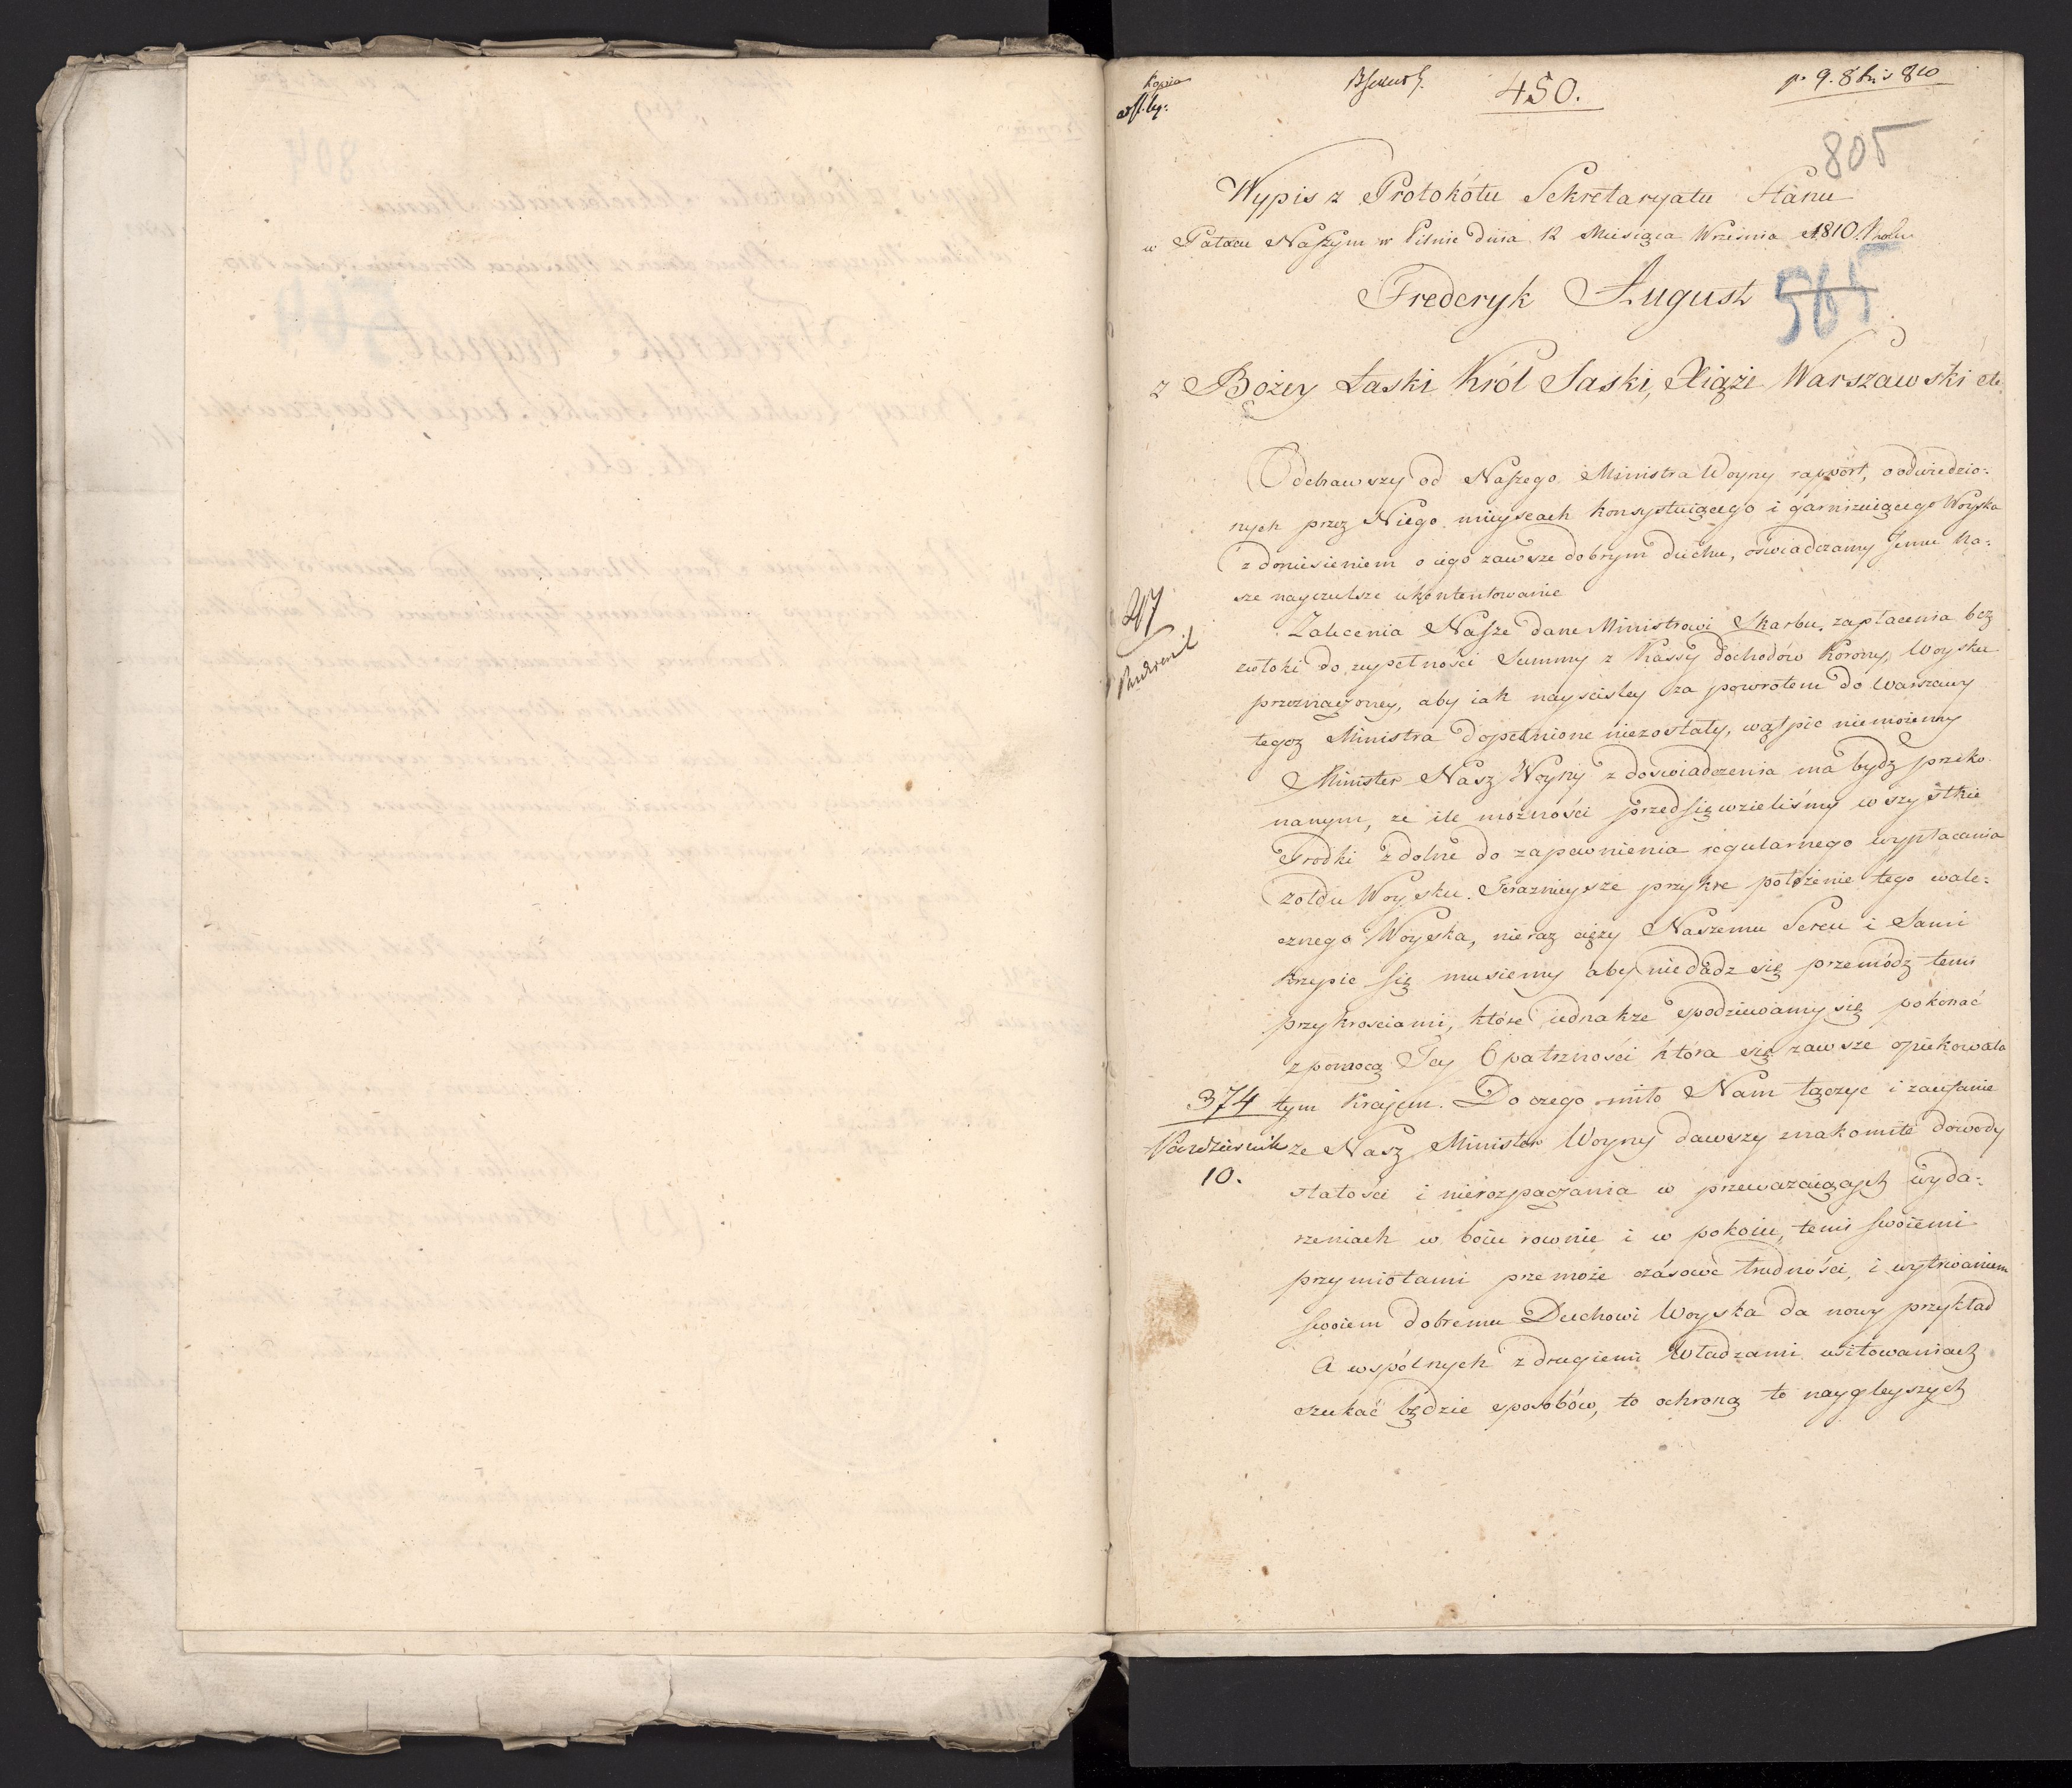 Kopia
450.
p. 9. 8bris 810
805
Wypis z Protokółu Sekretaryatu Stanu
w Pałacu Naszym w Pilnie dnia 12 Miesiąca Września 1810. Roku
Frederyk August
565
z Bożey Łaski Król Saski, Xiąże Warszawski etc
Odebrawszy od Naszego Ministra Woyny raport, o odwiedzio-
nych przez Niego mieyscach konsystuiącego i garnizuiącego Woyska
z doniesieniem o iego zawsze dobrym duchu, oświadczamy Jemu Na-
sze nayczulsze ukontentowanie
Zalecenia Nasze dane Ministrowi Skarbu, zapłacenia bez
zwłoki do zupełności Summy z Kassy dochodów Korony, Woysku
przeznaczoney, aby iak nayściśley za powrotem do Warszawy
tegoż Ministra dopełnione niezostały, wątpić niemożemy
Minister Nasz Woyny z doświadczenia ma bydź przeko-
nanym, że ile możności przedsięwzieliśmy wszystkie
Srodki zdolne do zapewnienia regularnego wypłacania
żołdu Woysku. Teraznieysze przykre położenie tego wale-
cznego Woyska, nieraz cięży Naszemu Sercu i Sami
krzepić się musiemy aby niedadz się przemódz temi
przykrościami, które iednakże spodziewamy się pokonać
z pomocą Tey Opatrzności która się zawsze opiekowała
374 tym Krajem. Do czego miło Nam łączyć i zaufanie
Pazdziernik że Nasz Minister Woyny dawszy znakomite dowody
10.
stałości i nierozpaczania w przeważaiących wyda-
rzeniach w boiu rownie i w pokoiu, temi swoiemi
przymiotami przemoże czasowe trudności, i wytrwaniem
swoiem dobremu Duchowi Woyska da nowy przykład
A wspólnych z drugiemi Władzami usiłowaniach
szukać będzie sposobów, to ochroną to